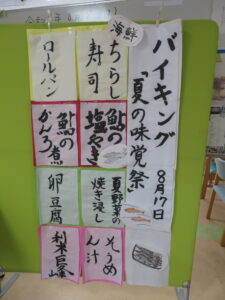 バイキング
「夏の味覚祭
8月17日
海鮮
ちらし
寿司
ロールパン
鮎の
塩やき
鮎の
かんろ煮
夏野菜の
焼き浸し
卵豆腐
そうめ
ん汁
巨峰